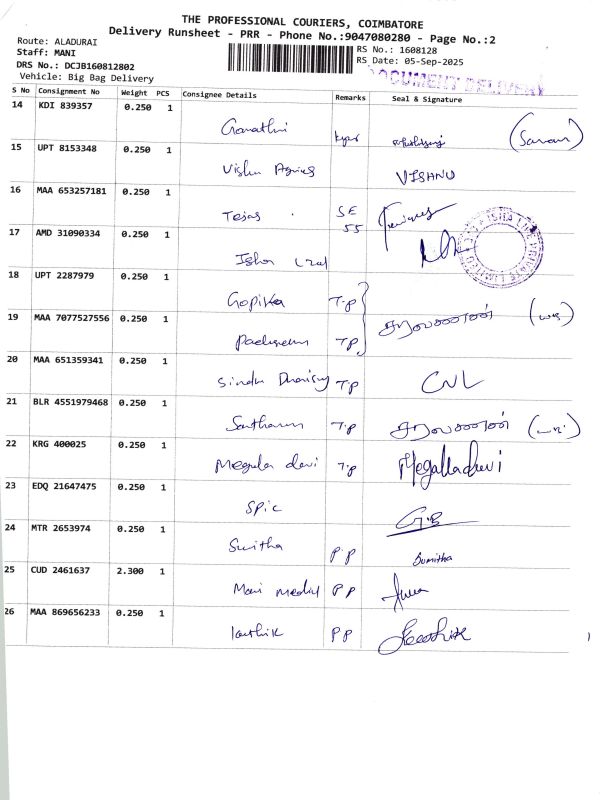 THE PROFESSIONAL COURIERS, COIMBATORE
Delivery Runsheet - PRR - Phone No.:9047080280 - Page No.:2
Route: ALADURAI
Staff: MANI
DRS No.: DCJB160812802
Vehicle: Big Bag Delivery
RS No.: 1608128
RS Date: 05-Sep-2025
DOCUMENT DELIVERY
S No Consignment No Weight PCS Consignee Details Remarks Seal & Signature
14 KDI 839357 0.250 1 (Saravan)
15 UPT 8153348 0.250 1 Vishnu VISHNU
16 MAA 653257181 0.250 1 Tejas SE 55
17 AMD 31090334 0.250 1 PRIVATE LIMITED
18 UPT 2287979 0.250 1 Gopika T.P
19 MAA 7077527556 0.250 1 T.P சரவணன்
20 MAA 651359341 0.250 1 Sindhu T.P CNL
21 BLR 4551979468 0.250 1 T.P சரவணன்
22 KRG 400025 0.250 1 Megala devi T.P Megalladevi
23 EDQ 21647475 0.250 1 SPIC G.B
24 MTR 2653974 0.250 1 Suvitha P.P Sumitha
25 CUD 2461637 2.300 1 Mani medical P P
26 MAA 869656233 0.250 1 Karthik P P